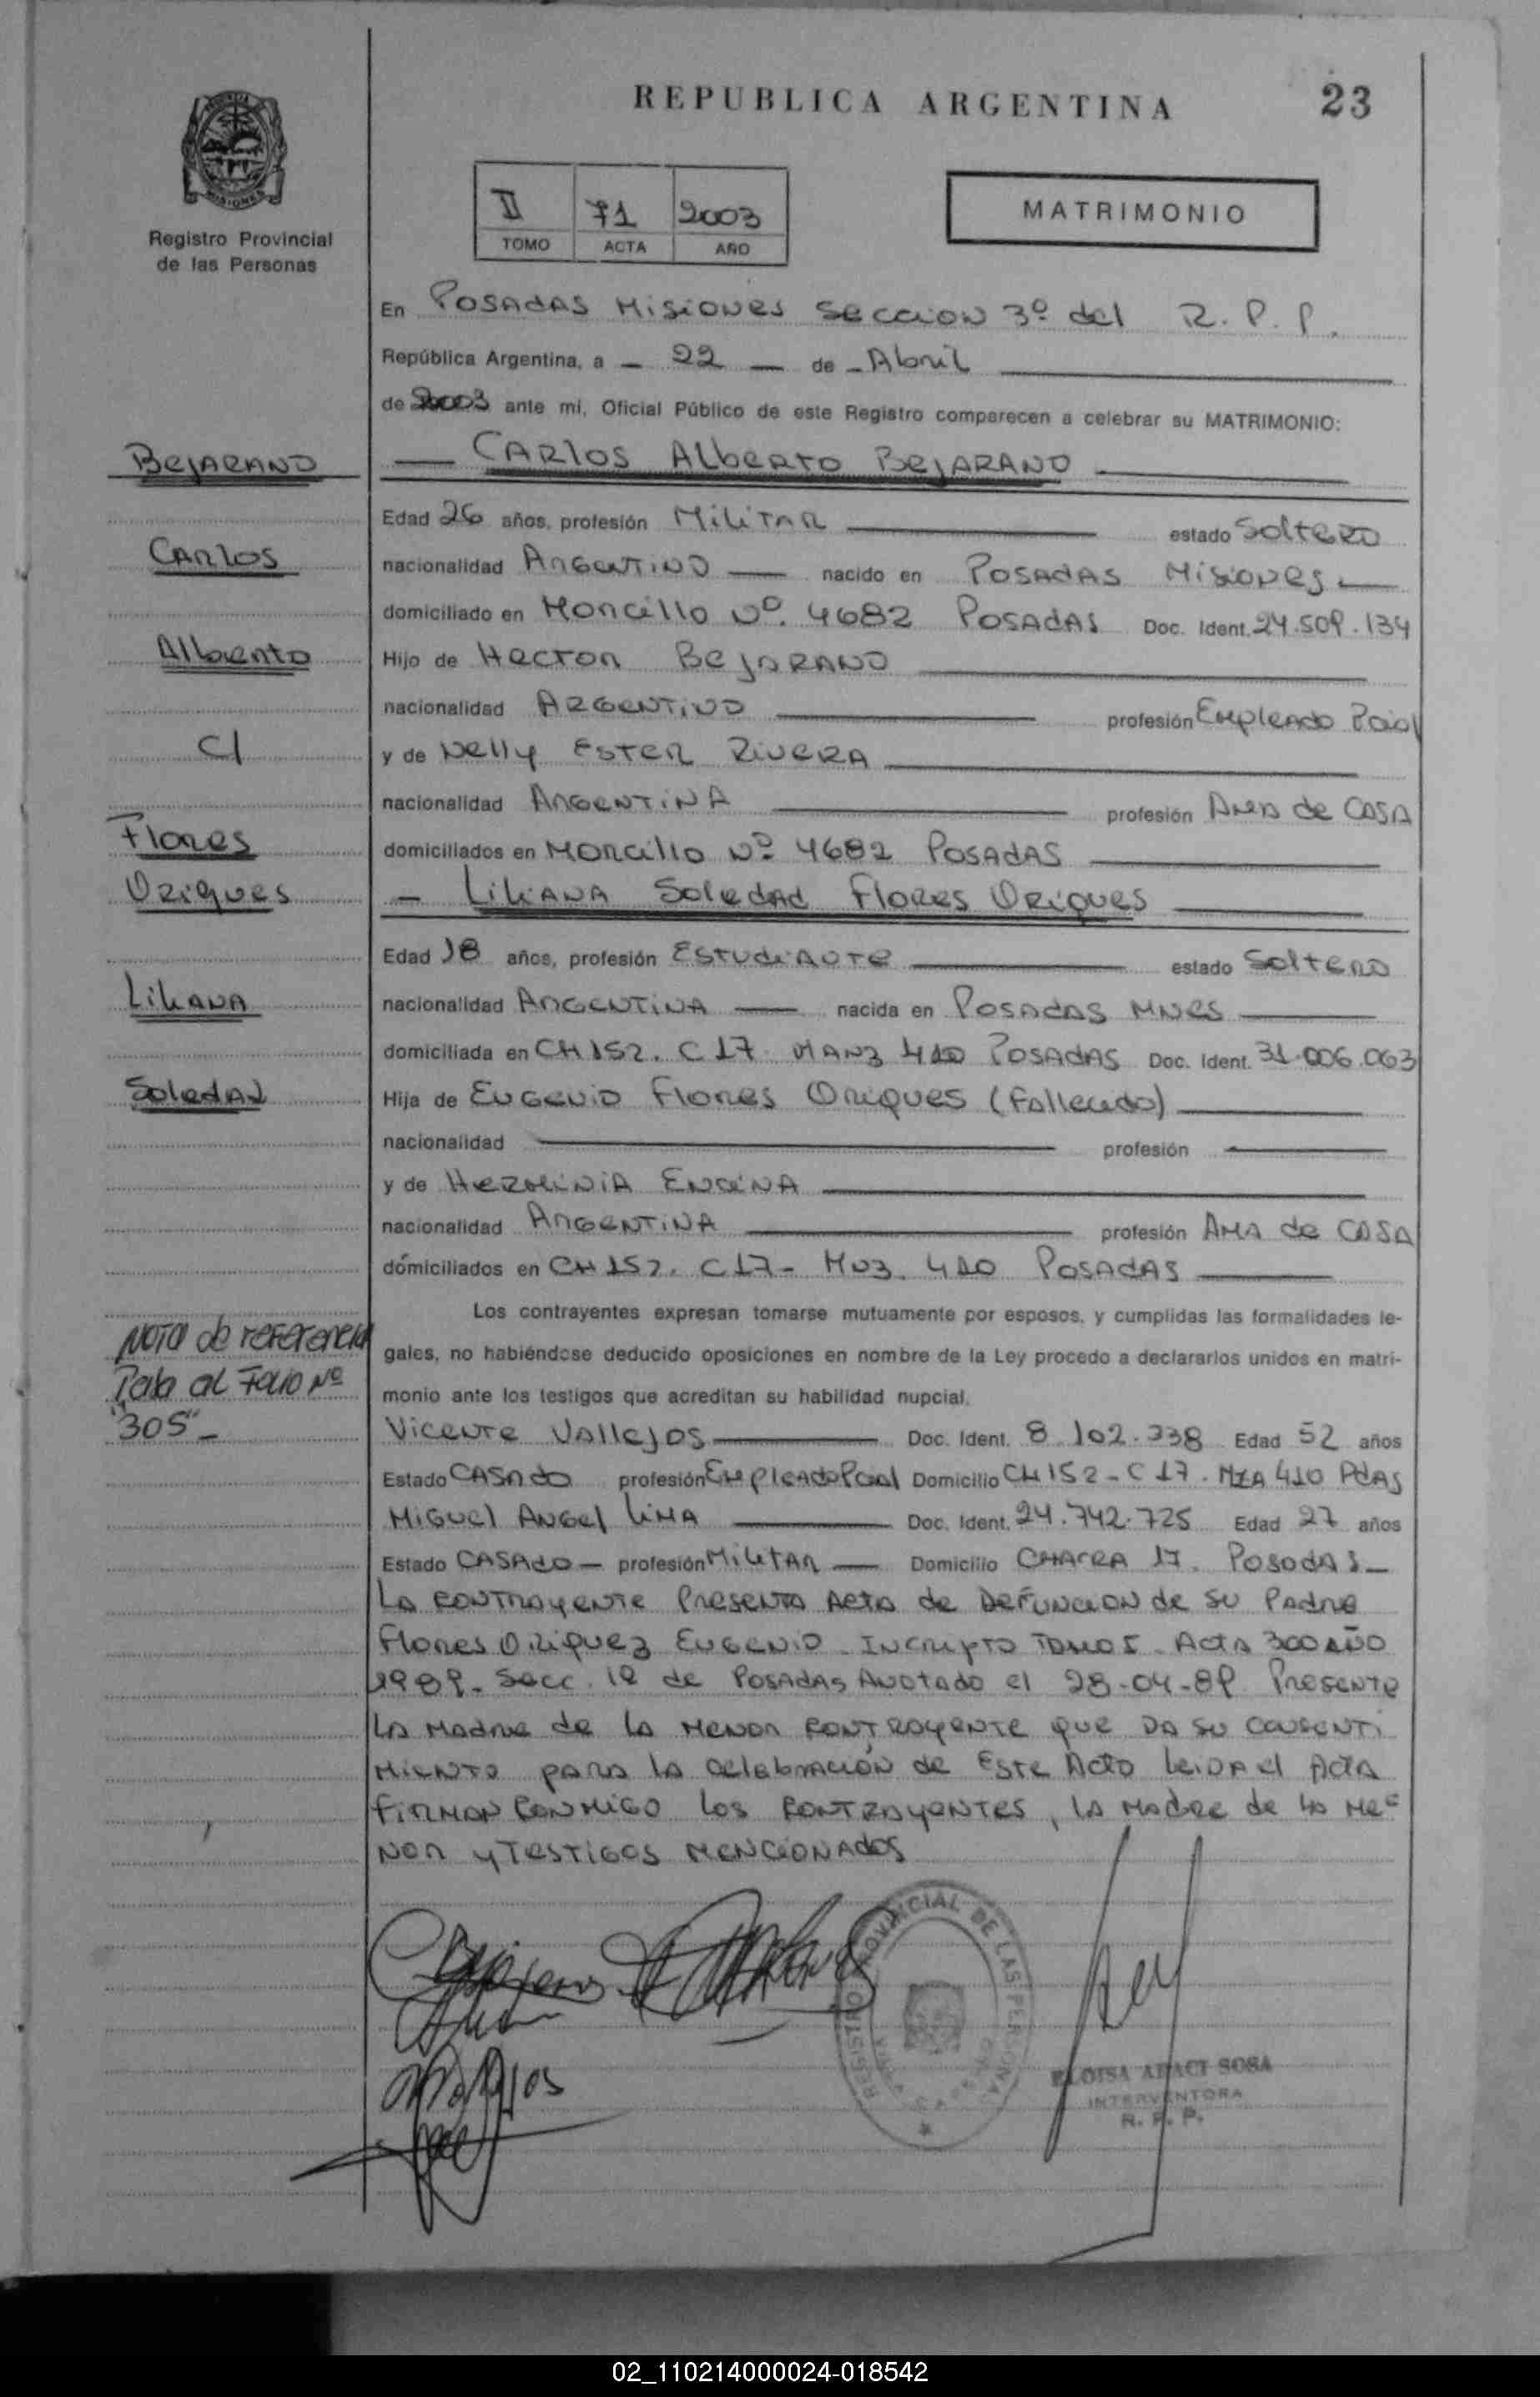 REPUBLICA ARGENTINA
23
Registro Provincial
de las Personas
II 71 2003
TOMO ACTA AÑO
MATRIMONIO
En Posadas Misiones Seccion 3º del R.P.P.
República Argentina, a - 22 - de - Abril
de 2003 ante mí, Oficial Público de este Registro comparecen a celebrar su MATRIMONIO:
Bejarano
Carlos Alberto Bejarano
Edad 26 años, profesión Militar estado Soltero
Carlos
nacionalidad Argentino nacido en Posadas Misiones
domiciliado en Morcillo Nº. 4682 Posadas Doc. Ident. 24.509.134
Alberto
Hijo de Hector Bejarano
nacionalidad Argentino profesión Empleado Pcial
C/
y de Nelly Ester Rivera
nacionalidad Argentina profesión Ama de Casa
Flores
domiciliados en Morcillo Nº 4682 Posadas
Oriques
- Liliana Soledad Flores Oriques
Edad 18 años, profesión Estudiante estado Soltero
Liliana
nacionalidad Argentina nacida en Posadas Mnes
domiciliada en CH 152. C 17. Manz 410 Posadas Doc. Ident. 31.006.063
Soledad
Hija de Eugenio Flores Oriques (Fallecido)
nacionalidad profesión
y de Herminia Encina
nacionalidad Argentina profesión Ama de Casa
domiciliados en CH 152. C 17- Mnz. 410 Posadas
Los contrayentes expresan tomarse mutuamente por esposos, y cumplidas las formalidades le-
gales, no habiéndose deducido oposiciones en nombre de la Ley procedo a declararlos unidos en matri-
monio ante los testigos que acreditan su habilidad nupcial.
Nota de referencia
Pasa al Folio Nº
"305"-
Vicente Vallejos Doc. Ident. 8.102.338 Edad 52 años
Estado Casado profesión Empleado Pcial Domicilio CH 152 - C 17. Mza 410 Pdas
Miguel Angel Lima Doc. Ident. 24.742.725 Edad 27 años
Estado Casado - profesión Militar - Domicilio Chacra 17. Posadas -
La contrayente Presenta Acta de Defuncion de su Padre
Flores Oriquez Eugenio. Incripto Tomo I. Acta 300 Año
1989. Secc. 1º de Posadas Anotado el 28-04-89. Presente
La Madre de la Menor contrayente que da su consenti
miento para la celebración de Este Acto Leida el Acta
Firman conmigo los contrayentes, la Madre de la Me-
nor y Testigos Mencionados
REGISTRO PROVINCIAL DE LAS PERSONAS
ELOISA ABACI SOSA
INTERVENTORA
R. P. P.
02_110214000024-018542